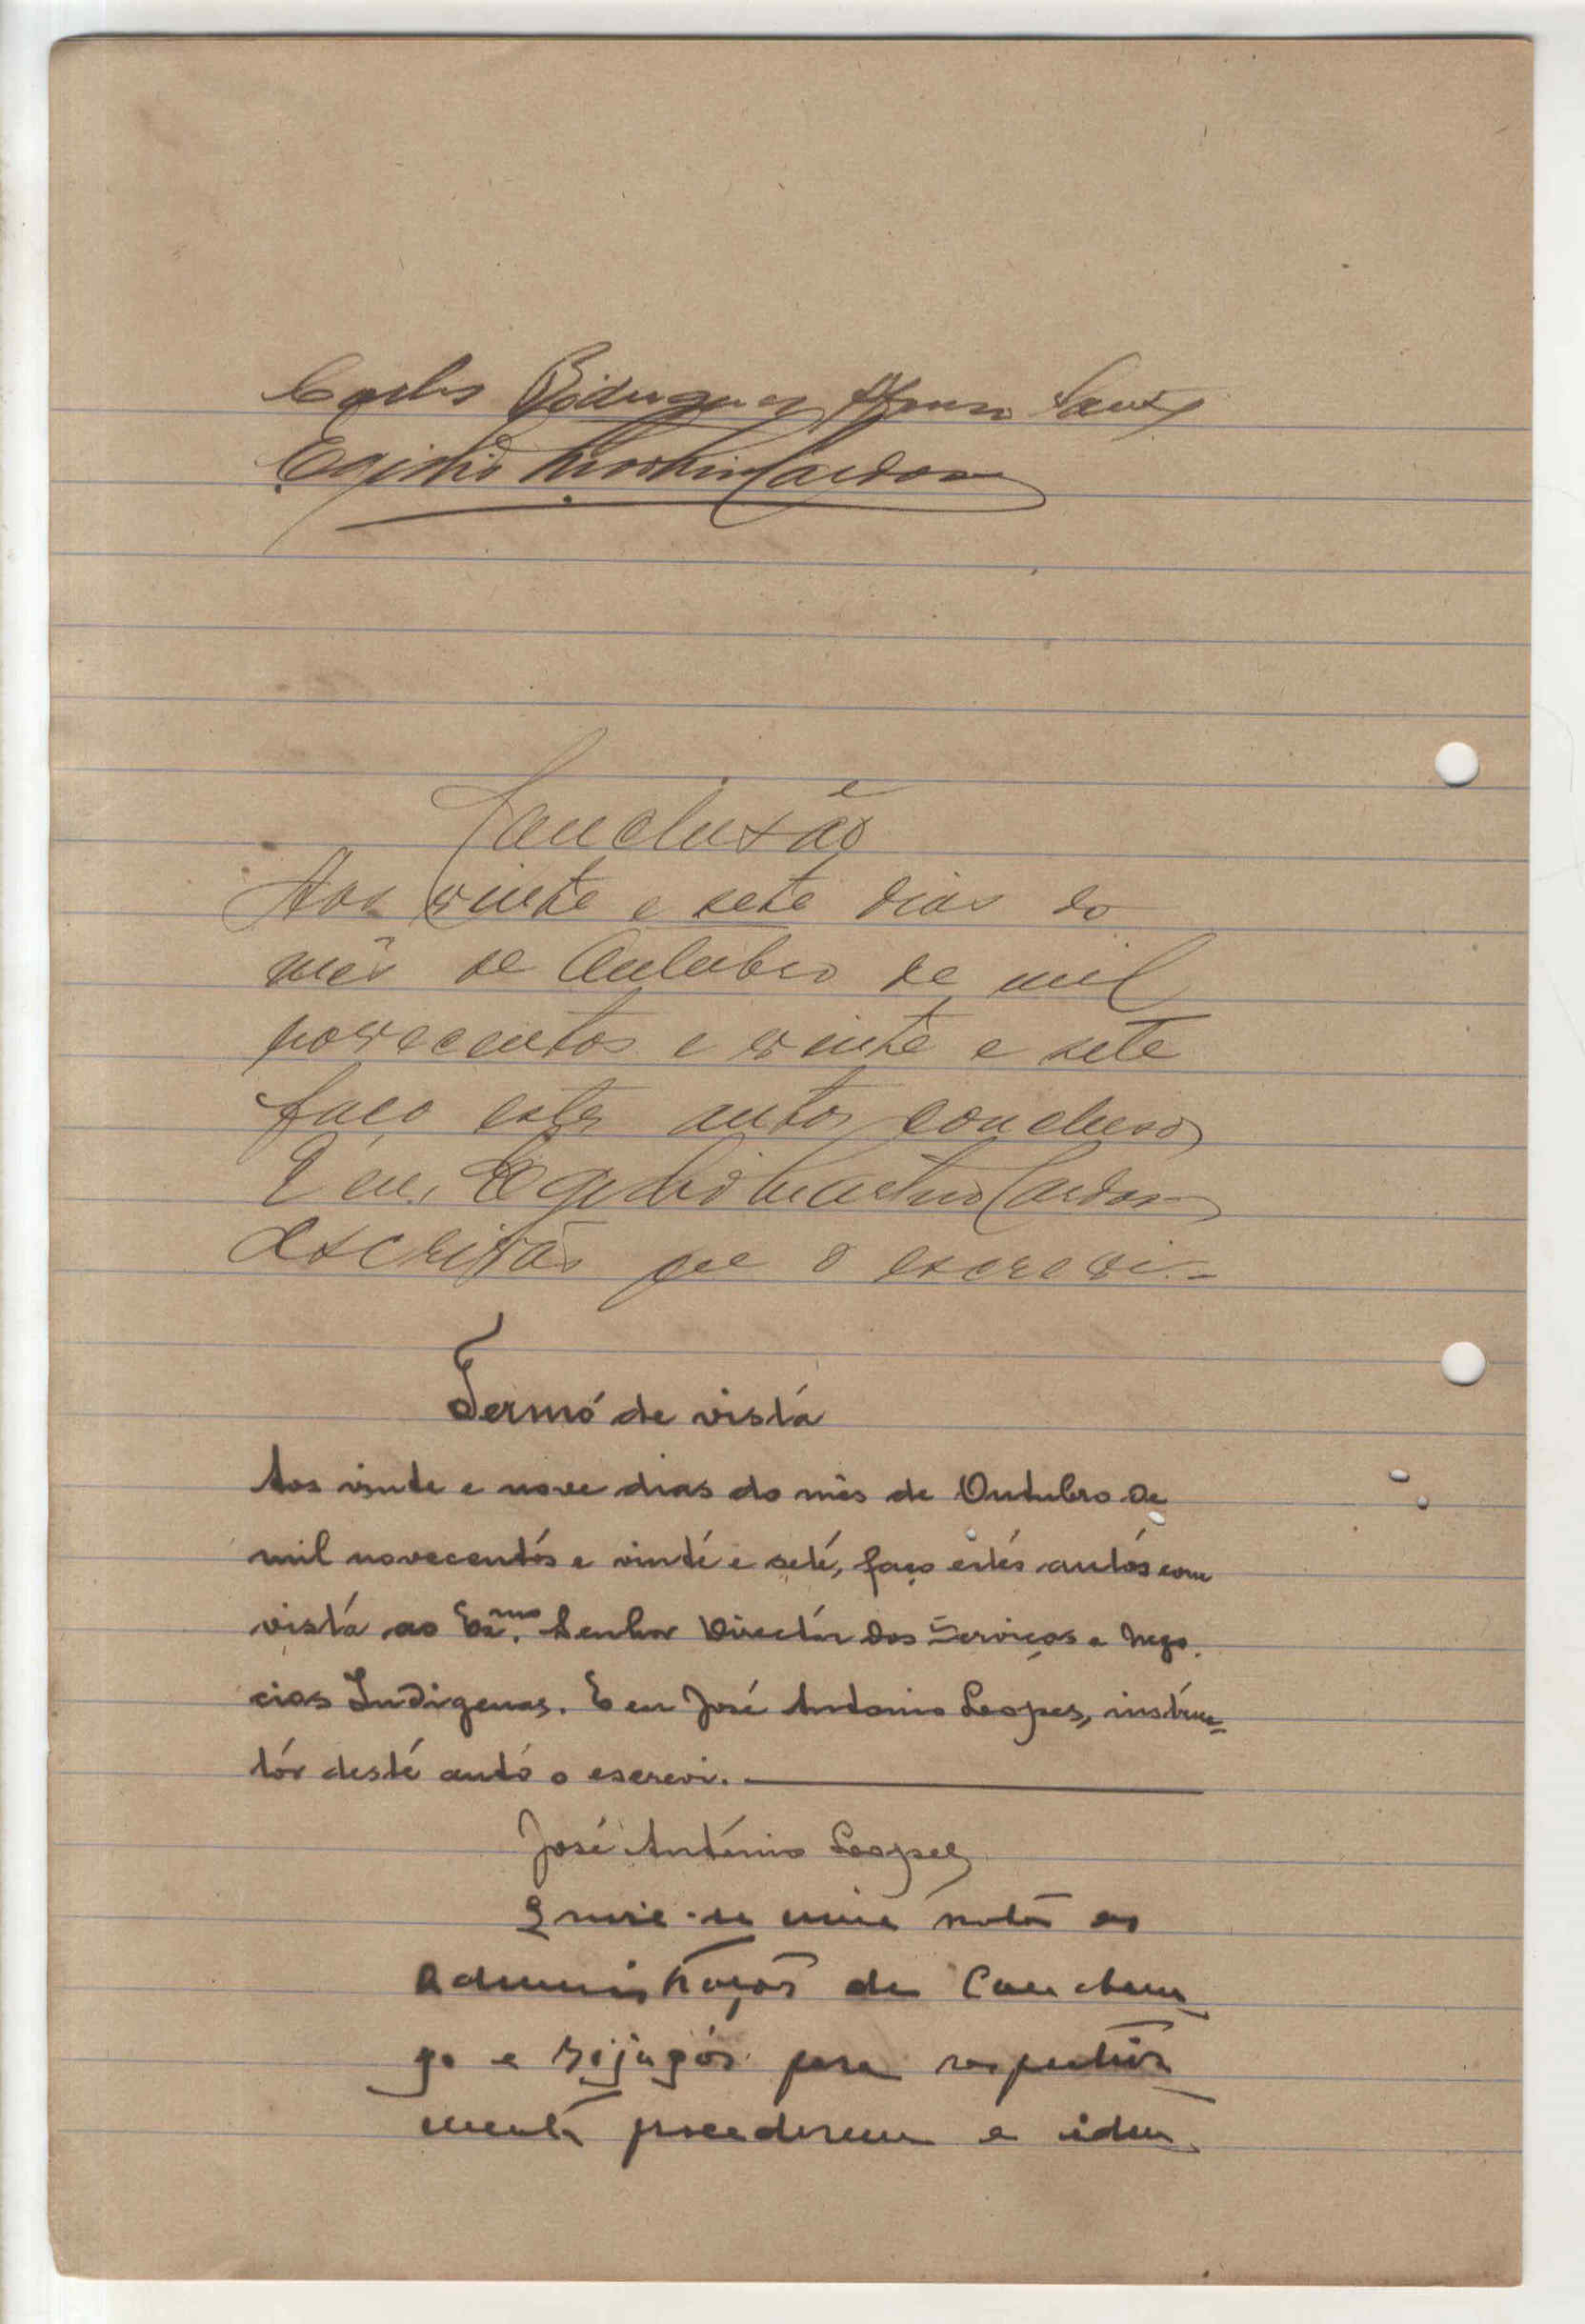 Carlos Rodrigues Afonso Santos
Egidio Martins Cardoso
Conclusão
Aos vinte e sete dias do
mês de Outubro de mil
novecentos e vinte e sete
faço estes autos conclusos
E eu, Egidio Martins Cardoso
escrivão que o escrevi.-
Termo de vista
Aos vinte e nove dias do mês de Outubro de
mil novecentos e vinte e sete, faço estes autos com
vista ao Exmo. Senhor Director dos Serviços e Nego-
cios Indigenas. E eu José Antonio Leopes, instruc-
tor deste auto o escrevi.
José António Leopes
Envie-se uma nota as
Administração de Canchun-
go e Bijagós para respectiva
mente procederem a iden-